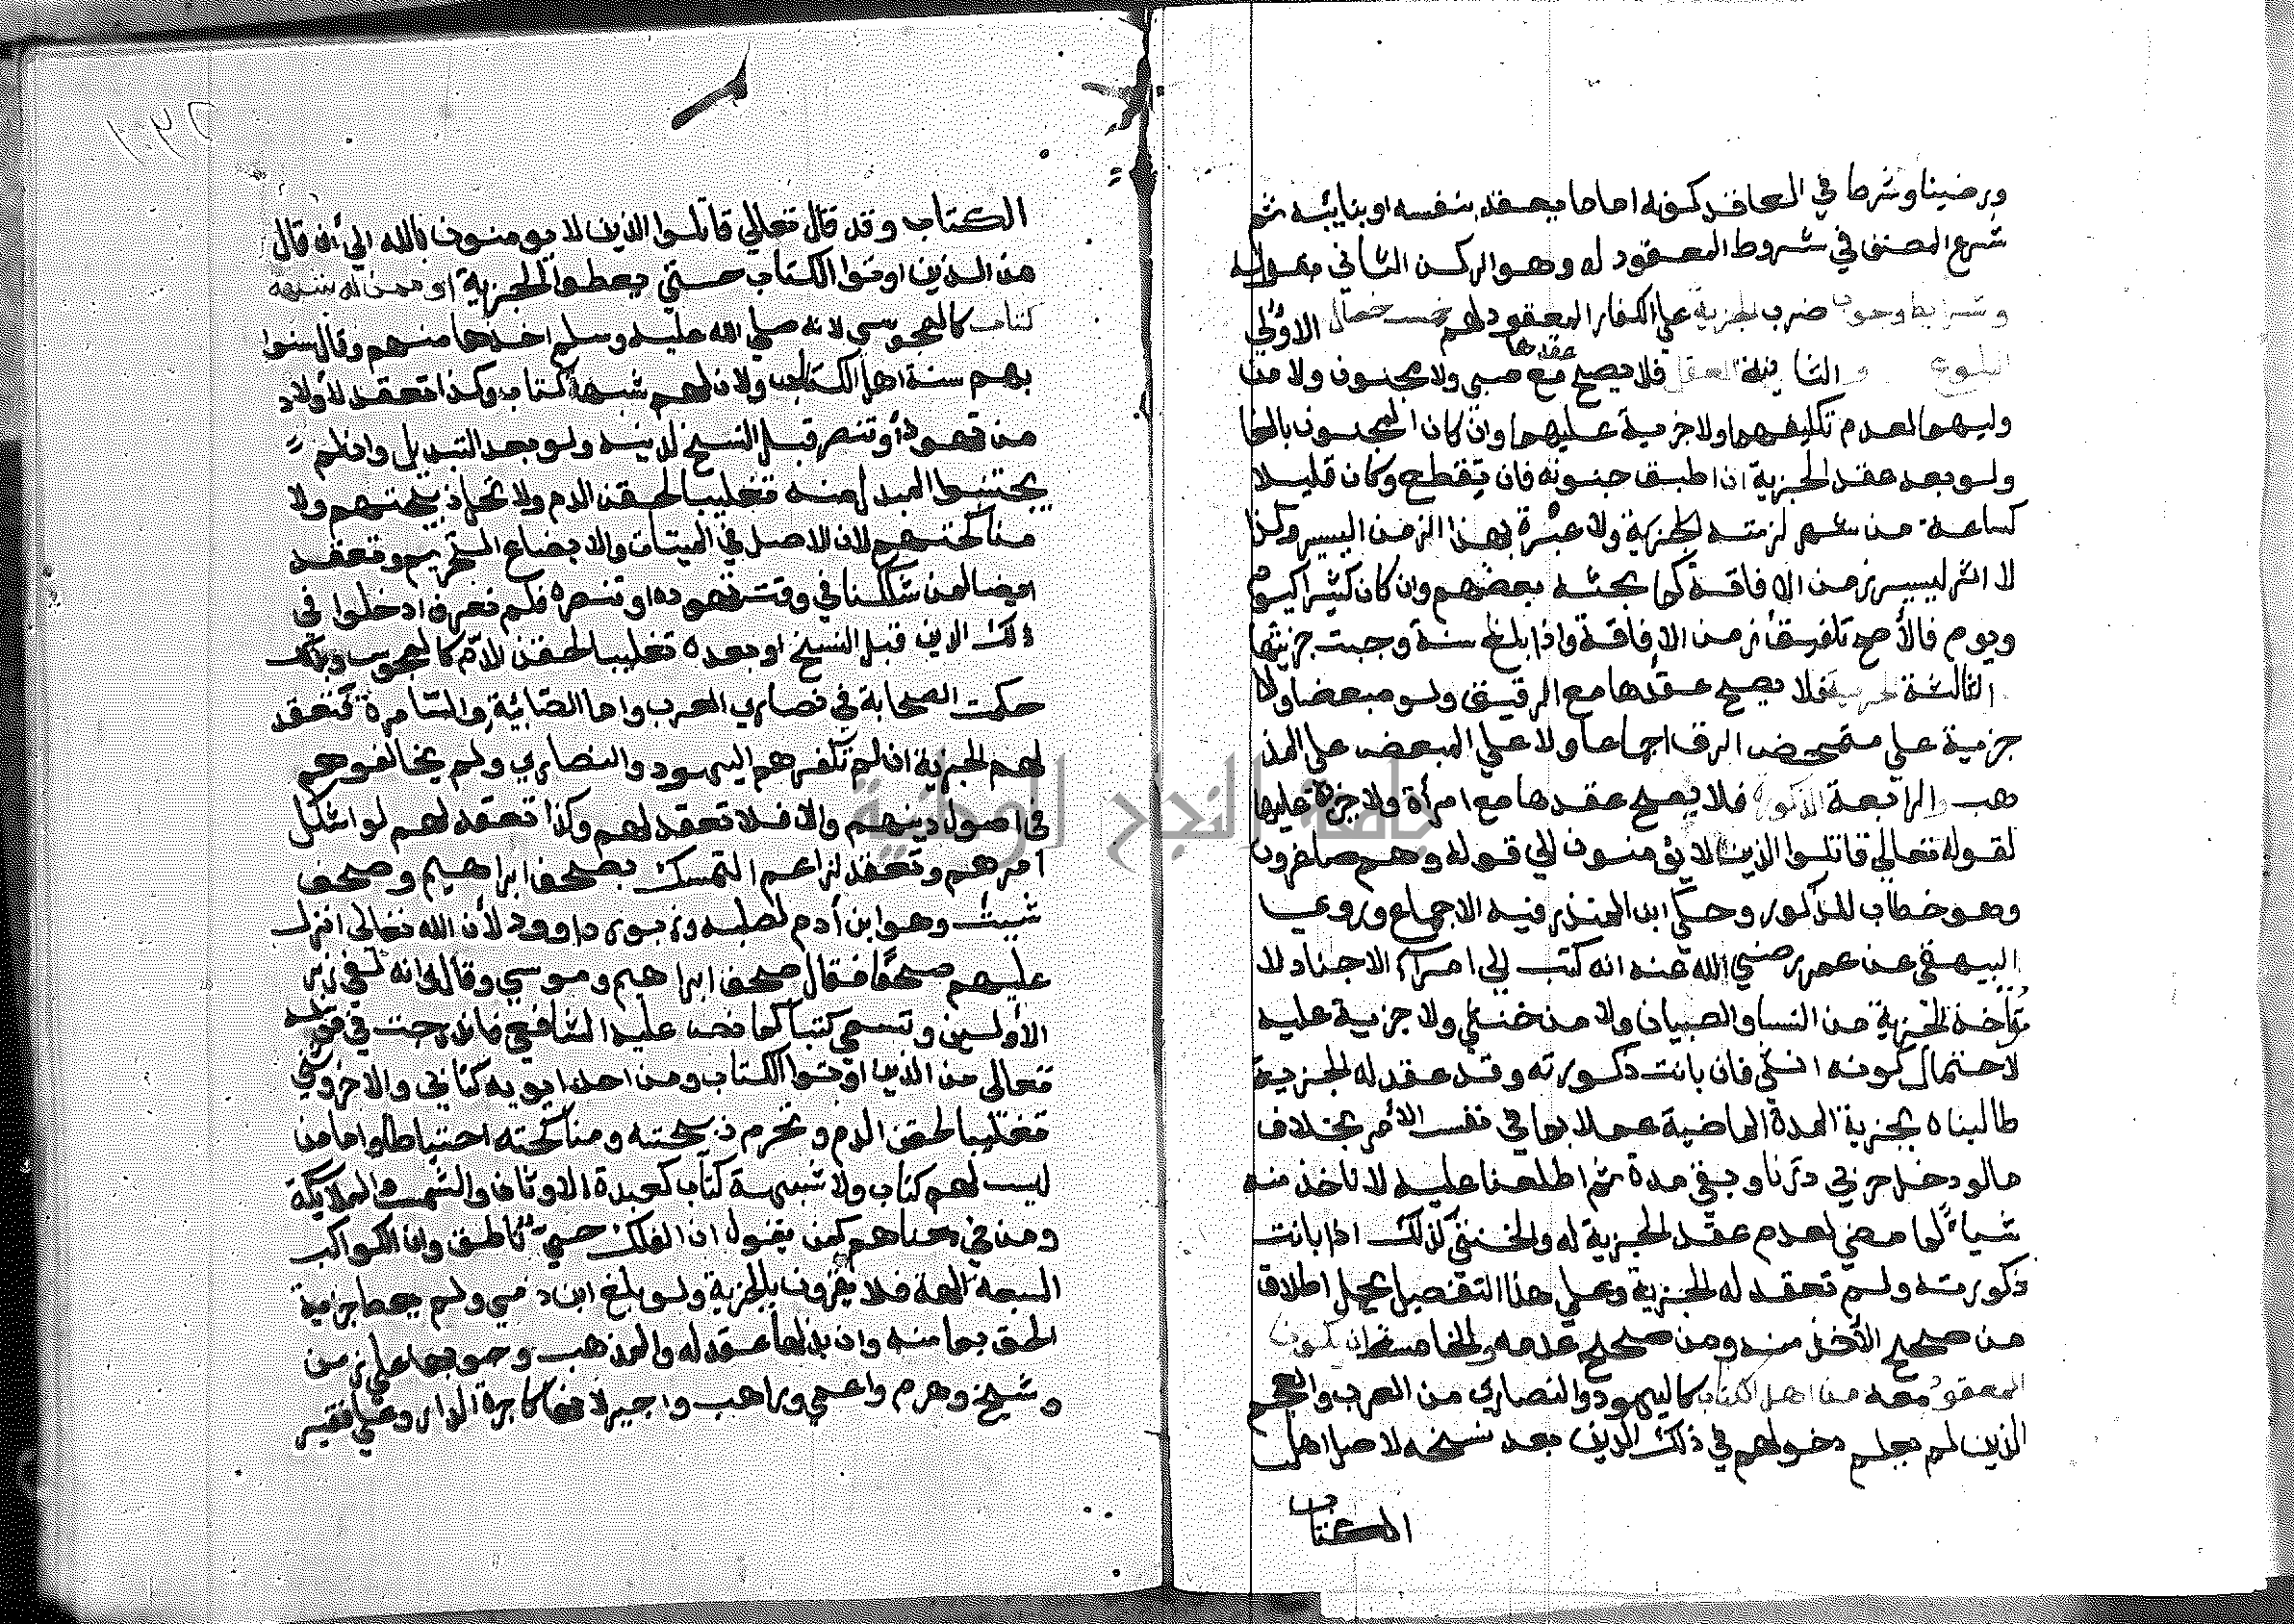 ورضينا وشرط في العاقد كونه اماما يعقد بنفسه او بنائبه ثم
شرع المصنف في شروط المعقود له وهو الركن الثاني بقوله
وشرايط وجوب ضرب الجزية على الكفار المعقود لهم خمس خصال الاولى
البلوغ و الثانية العقل فلا يصح عقدها مع صبي ولا مجنون ولا من
وليهما لعدم تكليفهما ولا جزية عليهما وان كان المجنون بالغا
ولو بعد عقد الجزية ان اطبق جنونه فان تقطع وكان قليلا
كساعة من شهر لزمته الجزية ولا عبرة بهذا الزمن اليسير وكذا
لا اثر ليسير زمن الافاقة كما بحثه بعضهم وان كان كثيرا كيوم
ويوم فالأصح تلفيق زمن الافاقة واذا بلغ سنة وجبت جزيتها
الثالثة الحرية فلا يصح عقدها مع الرقيق ولو مبعضا ولا
جزية على متمحض الرق اجماعا ولا على المبعض على المذ
هب والرابعة الذكورة فلا يصح عقدها مع امرأة ولا جزية عليها
لقوله تعالي قاتلوا الذين لا يؤمنون الي قوله وهم صاغرون
وهو خطاب للذكور وحكي ابن المنذر فيه الاجماع وروي
البيهقي عن عمر رضي الله عنه انه كتب الي امرآء الاجناد لا
تؤاخذ الجزية من النسا والصبيان ولا من خنثي ولا جزية عليه
لاحتمال كونه انثي فان بانت ذكورته وقد عقد له الجزية
طالبناه بجزية المدة الماضية عملا بما في نفس الأمر بخلاف
مالو دخل حربي دارنا وبقي مدة ثم اطلعنا عليه لا ناخذ منه
شيأ لما مضي لعدم عقد الجزية له والخنثي كذلك اذا بانت
ذكورته ولم تعقد له الجزية وعلي هذا التفصيل يحمل اطلاق
من صحح الأخذ منه ومن صحح عدمه والخامسة ان يكون
المعقود معه من اهل الكتاب كاليهود والنصاري من العرب والعجم
الذين لم يعلم دخولهم في ذلك الدين بعد نسخه لاصل اهل
الكتاب
الكتاب وقد قال تعالي قاتلوا الذين لا يومنون بالله الي أن قال
من الذين اوتوا الكتاب حتي يعطوا الجزية او ممن له شبهة
كتاب كالمجوسي لانه صلي الله عليه وسلم اخذها منهم وقال سنوا
بهم سنة اهل الكتاب ولان لهم شبهة كتاب وكذا تعقد لأولاد
من تهود أو تنصر قبل النسخ لدينه ولو بعد التبديل وان لم
يجتنبوا المبدل منه تغليبا لحقن الدم ولا تحل ذبيحتهم ولا
مناكحتهم لان الاصل في الميتات والابضاع التحريم وتعقد
ايضا لمن شككنا في وقت تهوده او تنصره فلم نعرف ادخلوا في
ذلك الدين قبل النسخ او بعده تغليبا لحقن الدم كالمجوس وبذلك
حكمت الصحابة في نصاري العرب واما الصابئة والسامرة فتعقد
لهم الجزية ان لم تكفرهم اليهود والنصاري ولم يخالفوهم
في اصول دينهم والا فلا تعقد لهم وكذا تعقد لهم لو اشكل
امرهم وتعقد لزاعم التمسك بصحف ابراهيم وصحف
شيث وهو ابن أدم لصلبه وزبور داوود لأن الله تعالى انزل
عليهم صحفا فقال صحف ابراهيم وموسي وقال وانه لفي زبر
الأولين وتسمي كتبا كما نص عليه الشافعي فاندرجت في قوله
تعالى من الذين اوتوا الكتاب ومن احد ابويه كتابي والاخر وثني
تغليبا لحقن الدم وتحرم ذبيحته ومناكحته احتياطا واما من
ليس لهم كتاب ولا شبهة كتاب كعبدة الاوثان والشمس والملايكة
ومن في معناهم كمن يقول ان الفلك حي ناطق وان الكواكب
السبعة الهة فلا يقرون بالجزية ولو بلغ ابن ذمي ولم يعط جزية
الحق بمامنه وان بذلها عقد له والمذهب وجوبها على زمن
وشيخ وهرم واعمي وراهب واجير لانها كاجرة الدار وعلي فقير